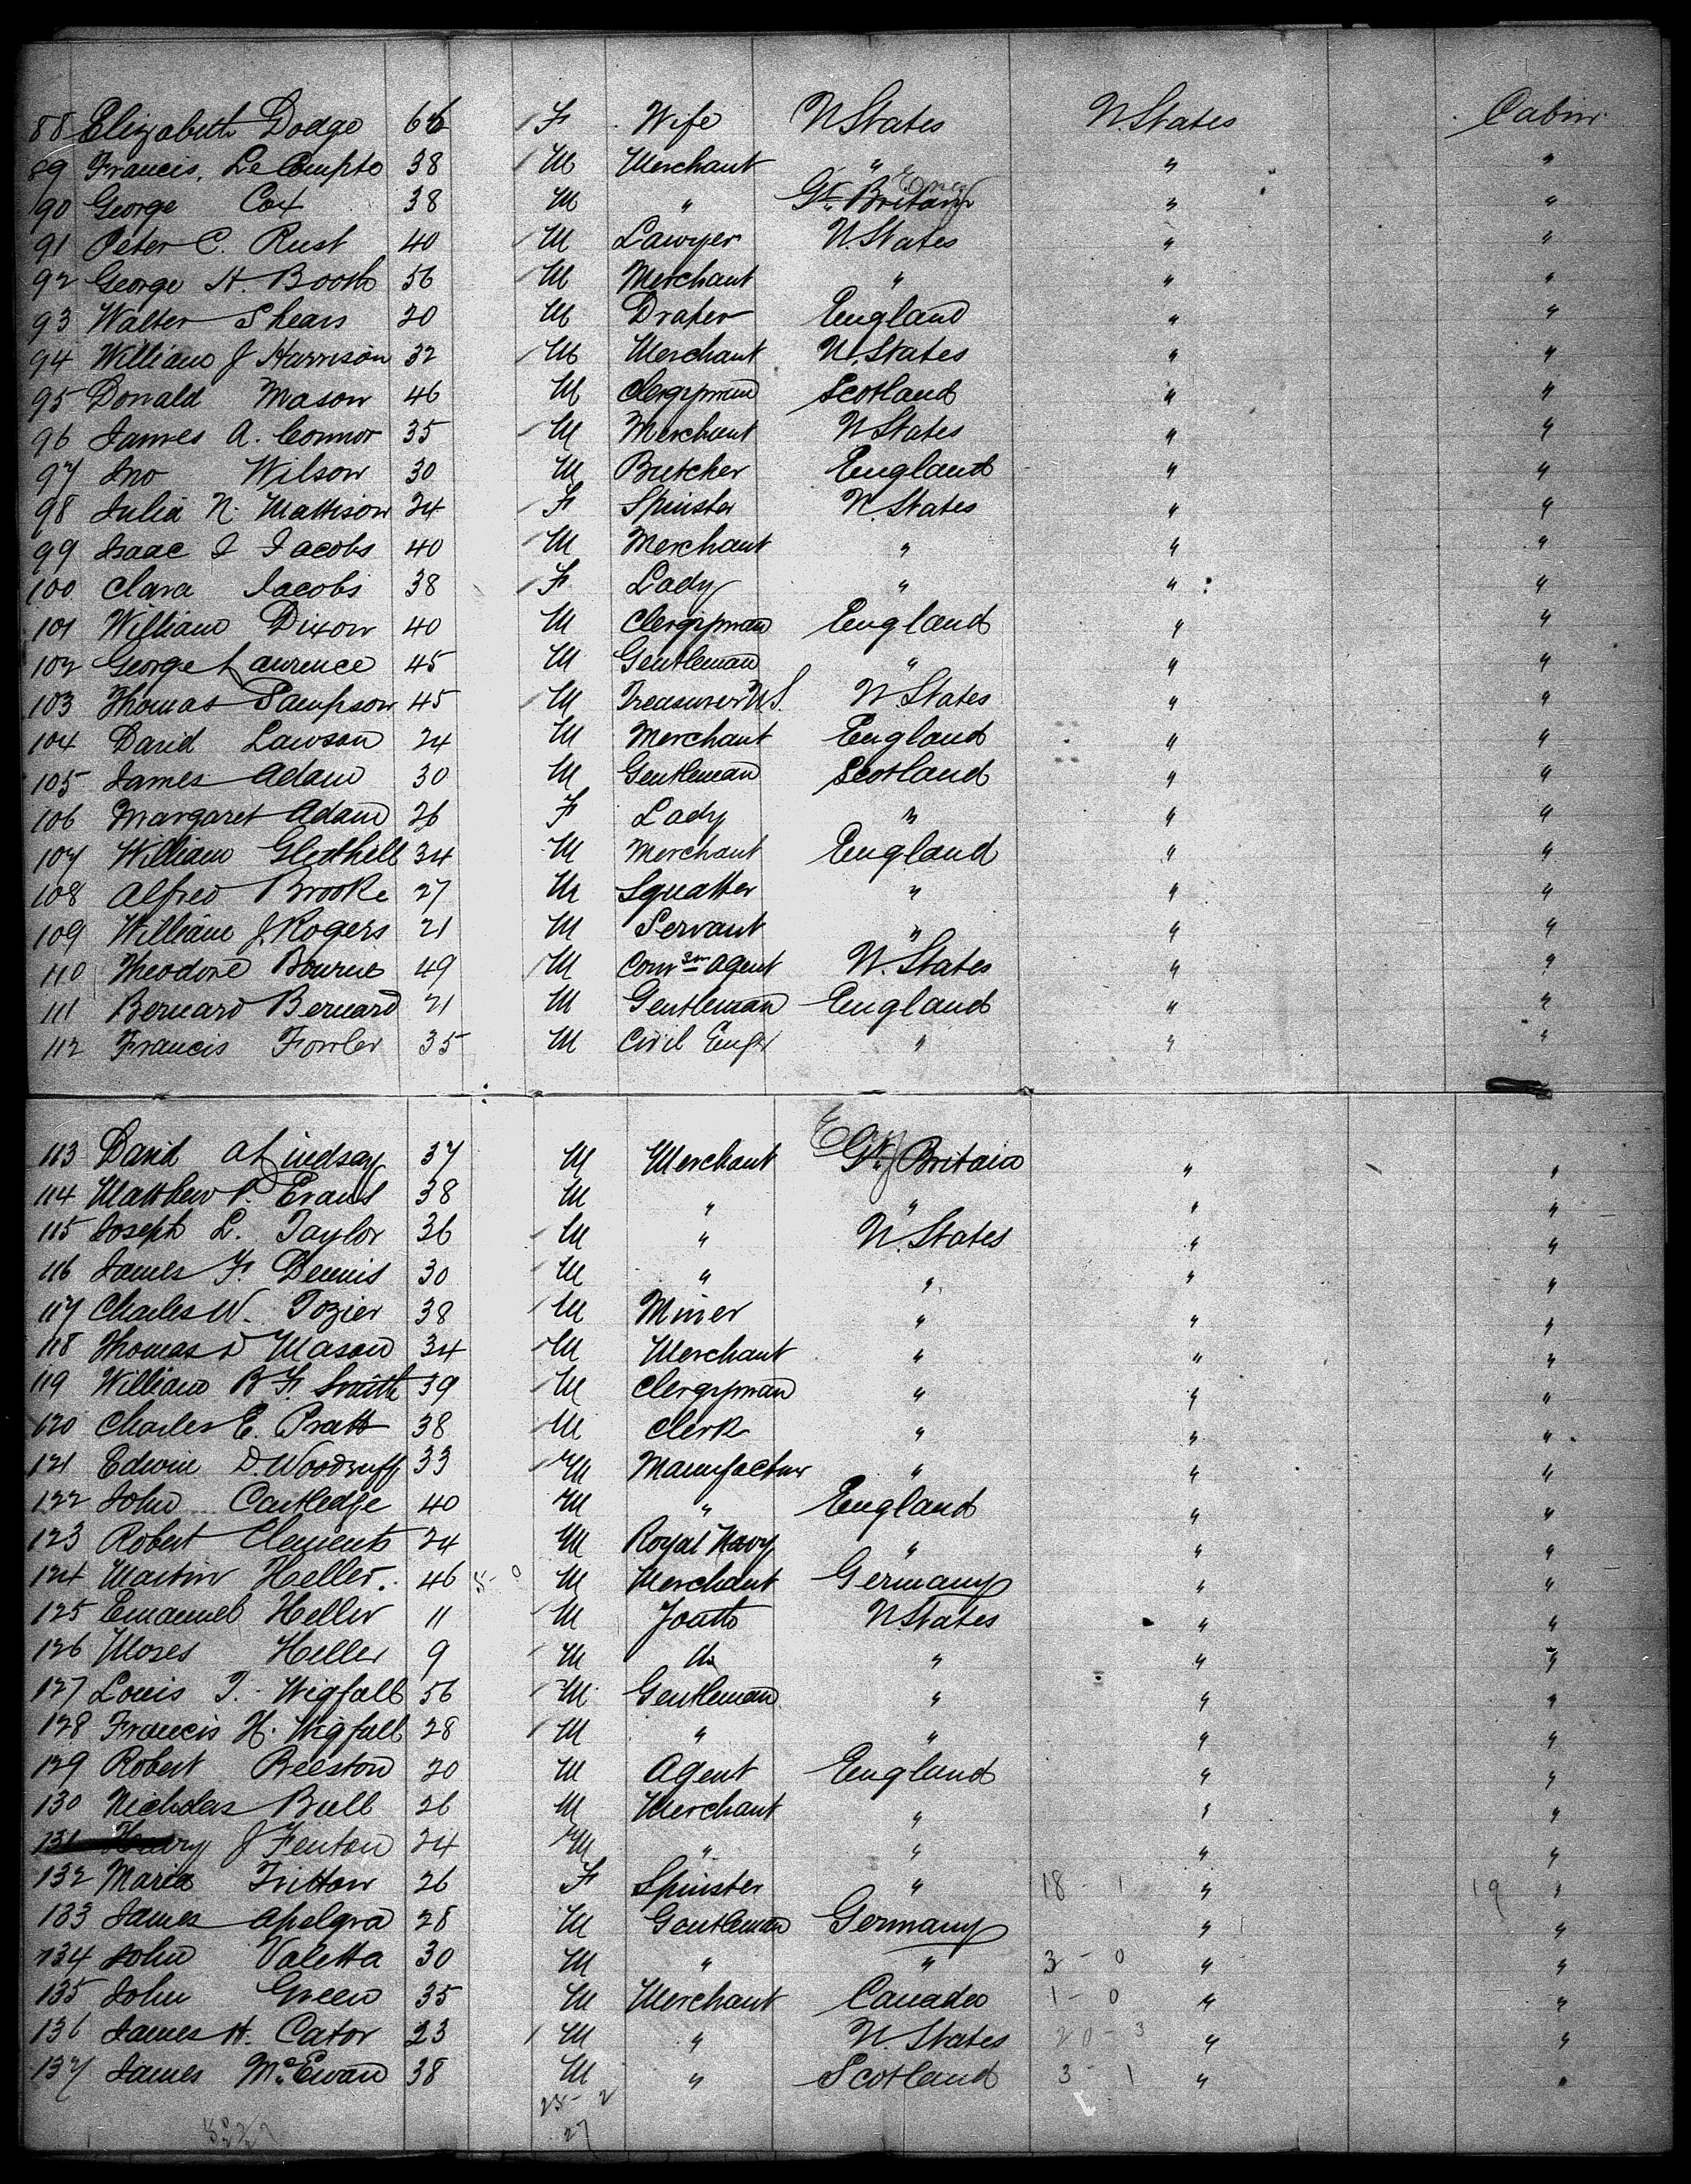 88 Elizabeth Dodge 66 / F Wife U States U. States Cabin
89 Francis, Le Compte 38 / M Merchant " " "
90 George Cox 38 M " Gt. Britain " "
91 Peter C. Rust 40 / M Lawyer U States " "
92 George H. Booth 56 / M Merchant " " "
93 Walter Shears 20 M Draper England " "
94 William J Harrison 32 / M Merchant U. States " "
95 Donald Mason 46 M Clergyman Scotland " "
96 James A. Connor 35 / M Merchant U States " "
97 Jno Wilson 30 M Butcher England " "
98 Julia N. Mattison 24 / F Spinster U. States " "
99 Isaac I Jacobs 40 / M Merchant " " "
100 Clara Jacobs 38 / F Lady " " "
101 William Dixon 40 M Clergyman England " "
102 George Laurence 45 M Gentleman " " "
103 Thomas Sampson 45 / M Treasurer U S. U. States " "
104 David Lawson 24 M Merchant England " "
105 James Adam 30 M Gentleman Scotland " "
106 Margaret Adam 26 F Lady " " "
107 William Gledhill 34 M Merchant England " "
108 Alfred Brooke 27 M Squatter " " "
109 William J. Rogers 21 M Servant " " "
110 Theodore Bourne 49 / M Comsn Agent U. States " "
111 Bernard Bernard 21 M Gentleman England " "
112 Francis Fowler 35 M Civil Engr " " "
113 David A Lindsay 37 M Merchant Gt. Britain " "
114 Matthew P. Evans 38 M " " " "
115 Joseph L. Taylor 36 / M " U. States " "
116 James F. Dennis 30 / M " " " "
117 Charles W. Tozier 38 / M Miner " " "
118 Thomas D Mason 34 / M Merchant " " "
119 William B F. Smith 39 / M Clergyman " " "
120 Charles E. Pratt 38 / M Clerk " " "
121 Edwin D. Woodruff 33 / M Manufactur " " "
122 John Cartledge 40 M " England " "
123 Robert Clements 24 M Royal Navy " " "
124 Martin Heller. 46 5 - 0 M Merchant Germany " "
125 Emanuel Heller 11 / M Youth U. States " "
126 Moses Heller 9 / M do " " "
127 Louis T. Wigfall 56 / M Gentleman " " "
128 Francis H. Wigfall 28 / M " " " "
129 Robert Beeston 20 M Agent England " "
130 Nicholas Bull 26 M Merchant " " "
131 Henry J Fenton 24 M " " " "
132 Maria Tritton 26 F Spinster " 18 - 1 " 19 "
133 James Apelgra 28 M Gentleman Germany " "
134 John Valetta 30 M " " 3 - 0 " "
135 John Green 35 M Merchant Canada 1 - 0 " "
136 James H. Cator 23 / M " U. States 20 - 3 " "
137 James McEwan 38 M " Scotland 3 - 1 " "
25 - 2
27